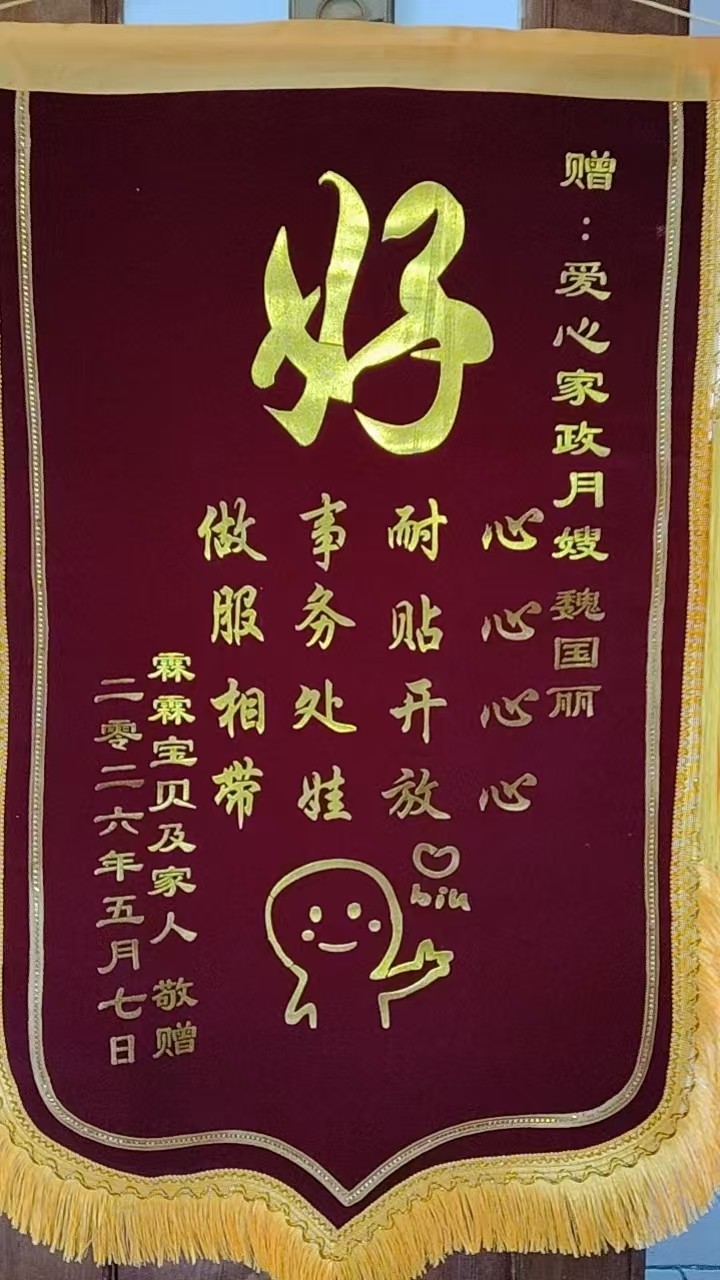 赠：爱心家政月嫂魏国丽
好
做事耐心
服务贴心
相处开心
带娃放心
biu
霖霖宝贝及家人 敬赠
二零二六年五月七日